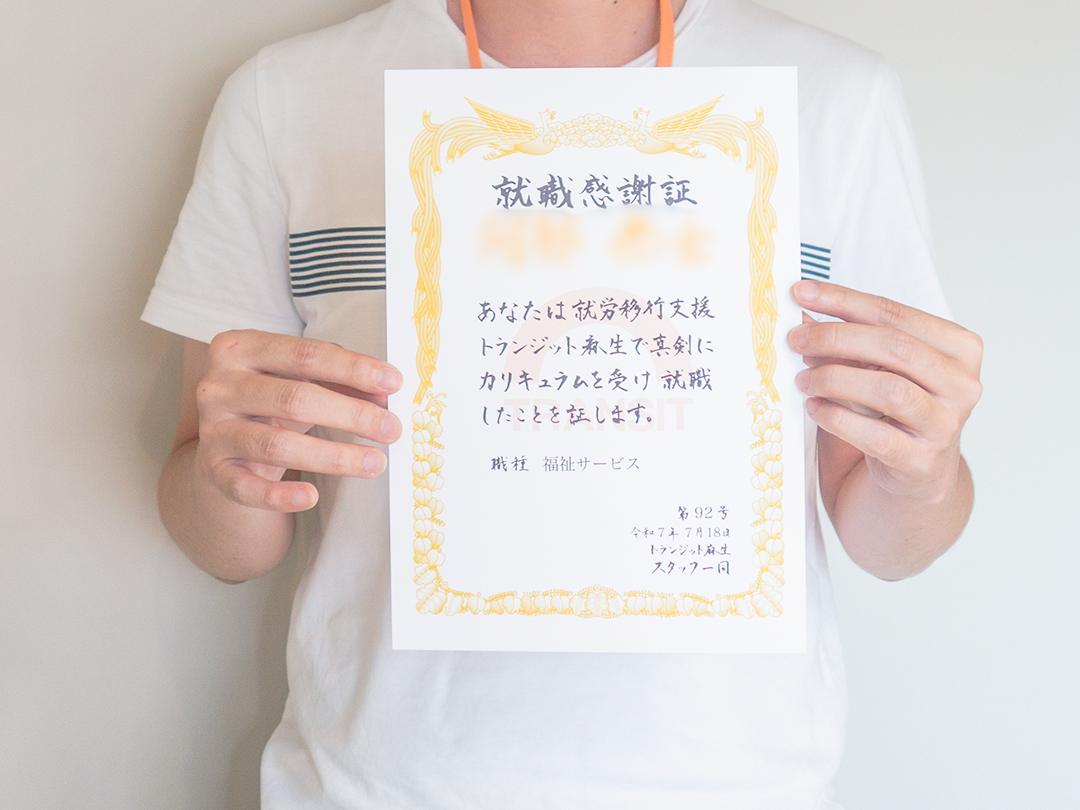 就職感謝証
あなたは就労移行支援
トランジット麻生で真剣に
カリキュラムを受け就職
したことを証します。
TRANSIT
職種 福祉サービス
第92号
令和7年7月18日
トランジット麻生
スタッフ一同